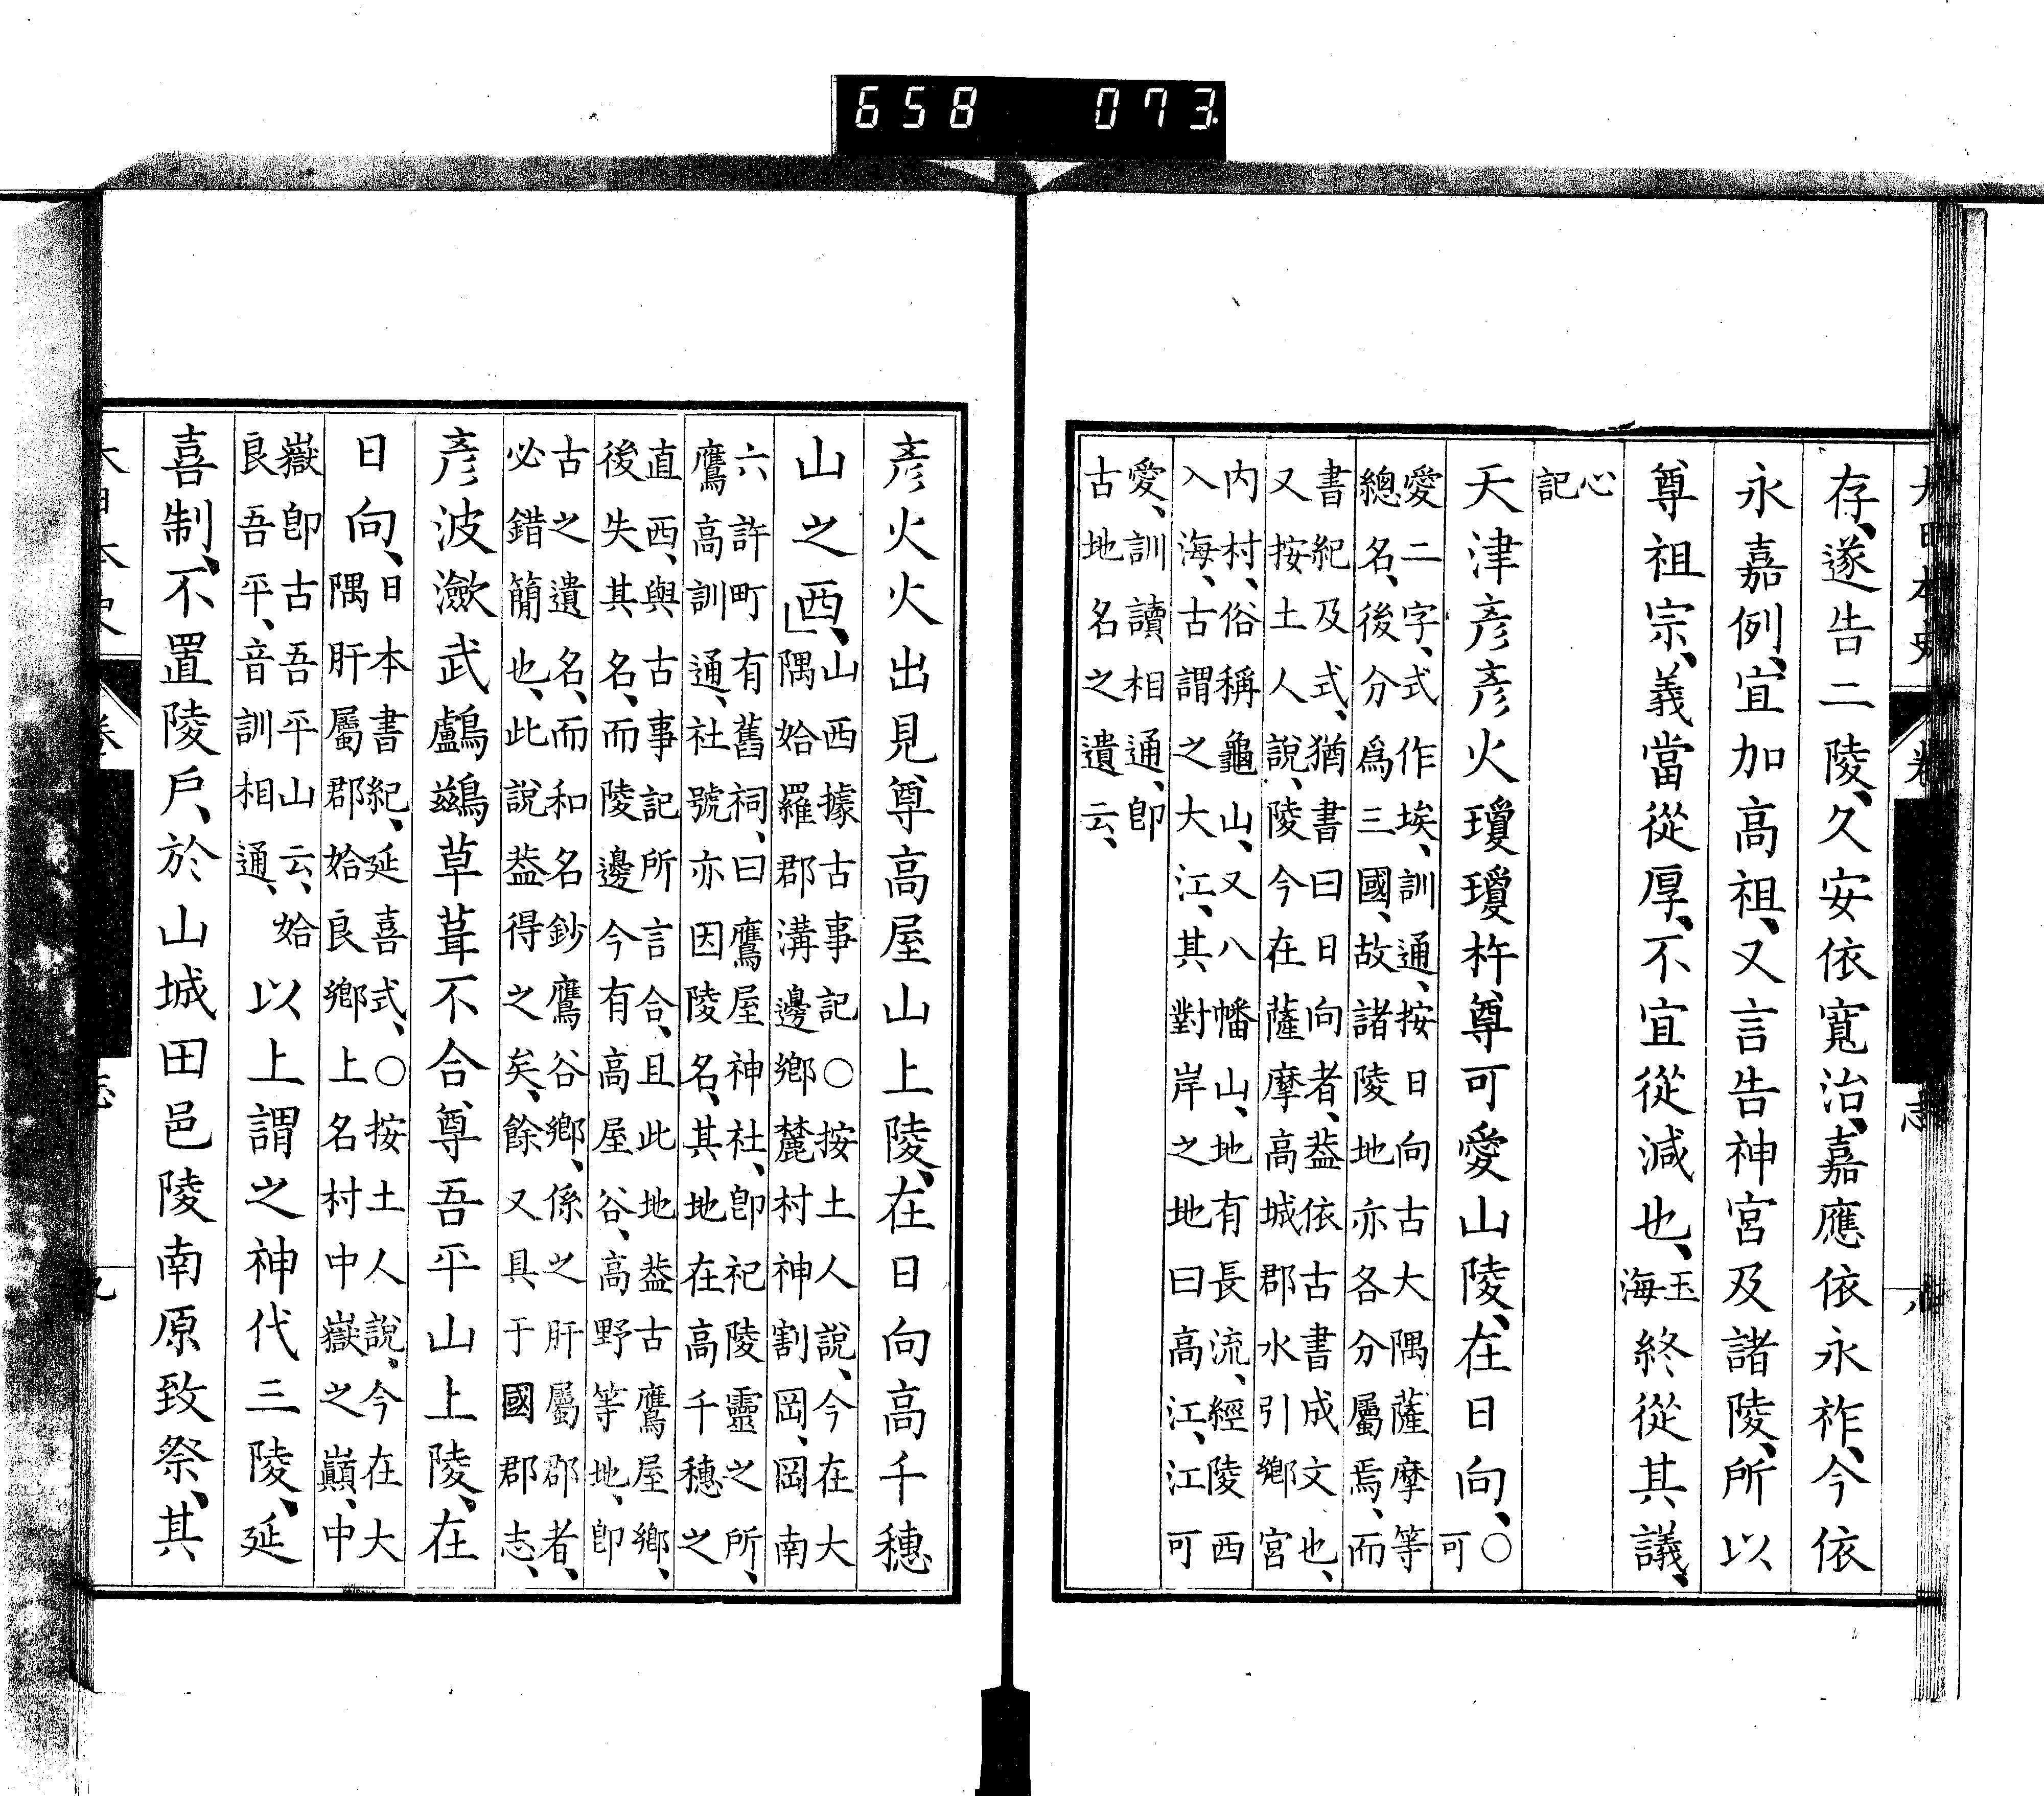 658 073
存、遂告二陵、久安依寬治、嘉應依永祚、今依
永嘉例、宜加高祖、又言告神宮及諸陵、所以
尊祖宗、義當從厚、不宜從減也、玉海終從其議、
心記
天津彥彥火瓊瓊杵尊可愛山陵、在日向、○可
愛二字、式作埃、訓通、按日向古大隅薩摩等
總名、後分爲三國、故諸陵地亦各分屬焉、而
書紀及式、猶書曰日向者、葢依古書成文也、
又按土人說、陵今在薩摩高城郡水引鄉宮
内村、俗稱龜山、又八幡山、地有長流、經陵西
入海、古謂之大江、其對岸之地曰高江、江可
愛、訓讀相通、卽
古地名之遺云、
彥火火出見尊高屋山上陵、在日向高千穗
山之西、」山西據古事記○按土人說、今在大
隅姶羅郡溝邊鄉麓村神割岡、岡南
六許町有舊祠、曰鷹屋神社、卽祀陵靈之所、
鷹高訓通、社號亦因陵名、其地在高千穗之
直西、與古事記所言合、且此地葢古鷹屋鄉、
後失其名、而陵邊今有高屋谷、高野等地、卽
古之遺名、而和名鈔鷹谷鄉、係之肝屬郡者、
必錯簡也、此說葢得之矣、餘又具于國郡志、
彥波瀲武鸕鷀草葺不合尊吾平山上陵、在
日向、日本書紀、延喜式、○按土人說、今在大
隅肝屬郡姶良鄉上名村中嶽之巔、中
嶽卽古吾平山云、姶
良吾平、音訓相通、以上謂之神代三陵、延
喜制、不置陵戶、於山城田邑陵南原致祭、其